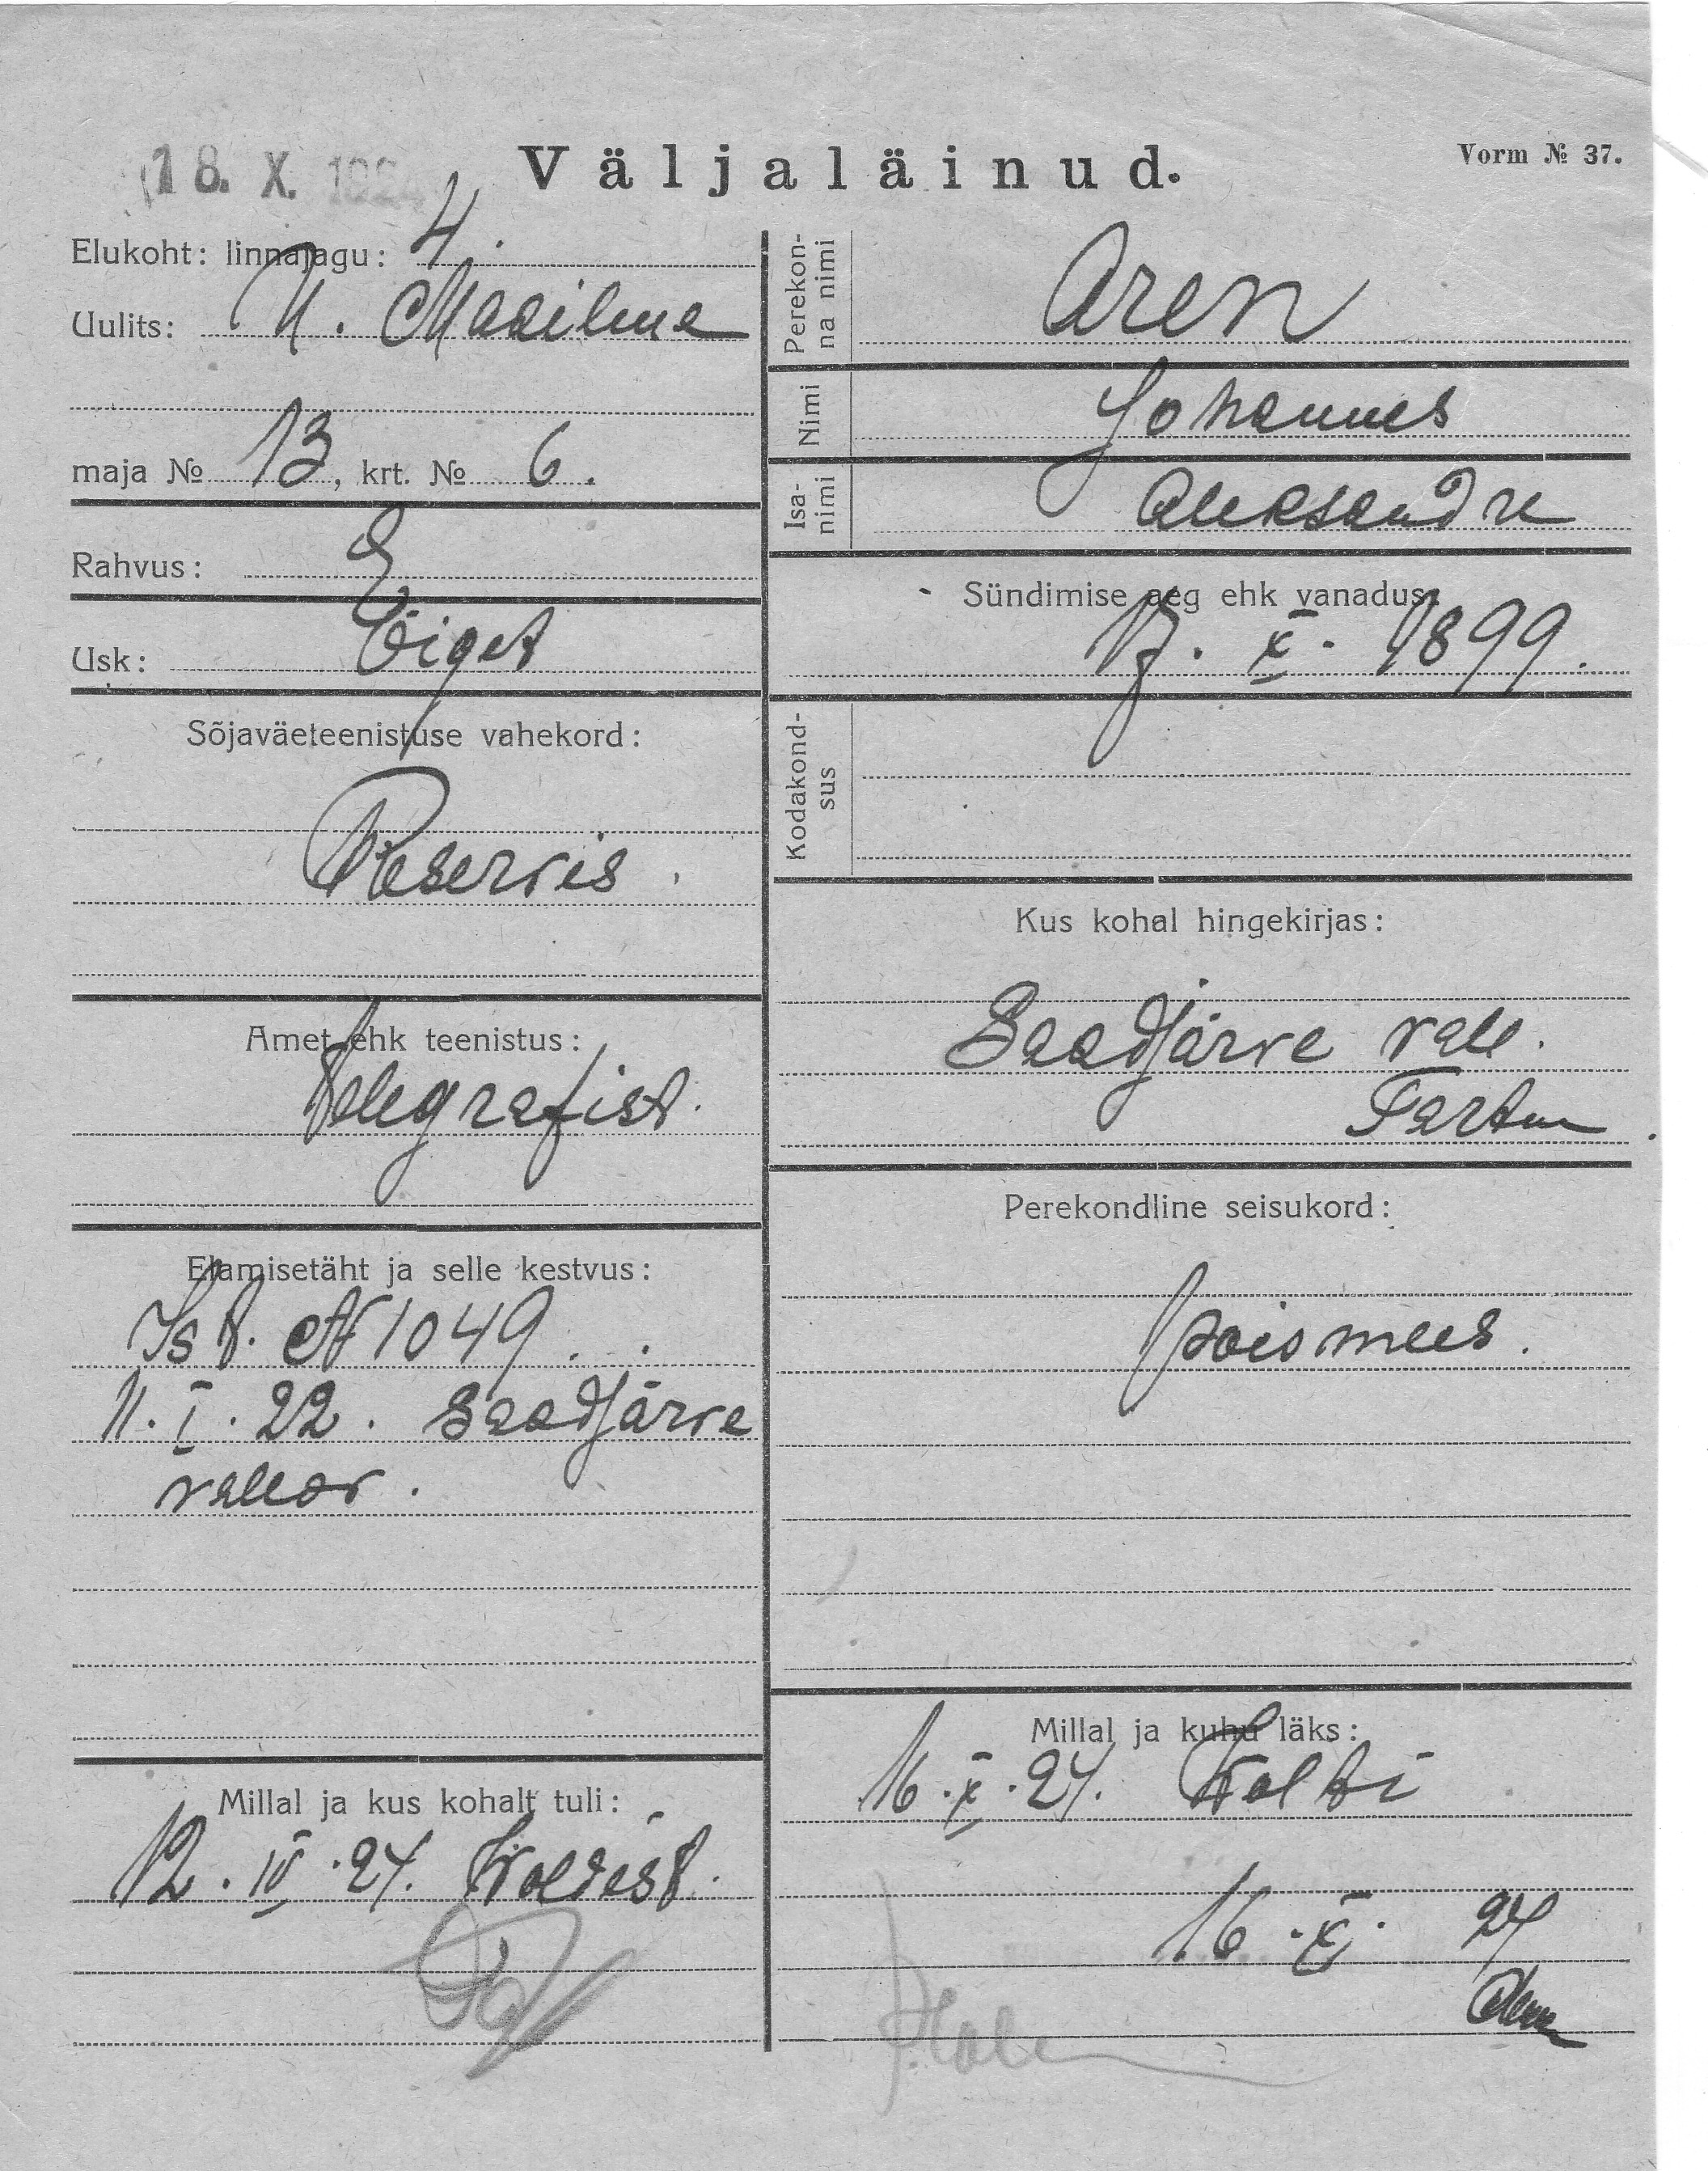 18. X. 192
Väljaläinud.
Vorm № 37.
Elukoht: linnajagu: 4.
Uulits: U. Maailma
maja № 13, krt. № 6.
Rahvus: E
Usk: Õiget
Sõjaväeteenistuse vahekord:
Reservis.
Amet ehk teenistus:
telegrafist.
Elamisetäht ja selle kestvus:
Ist. N 1049.
11. I. 22. Saadjärve
vallav.
Millal ja kus kohalt tuli:
12. IV. 24.
Perekon-
na nimi
Aren
Nimi
Johannes
Isa-
nimi
Aleksandre
Sündimise aeg ehk vanadus:
17. X. 1899.
Kodakond-
sus
Kus kohal hingekirjas:
Saadjärve vall.
Tartu
Perekondline seisukord:
poismees.
Millal ja kuhu läks:
16. X. 24.
16. X. 24